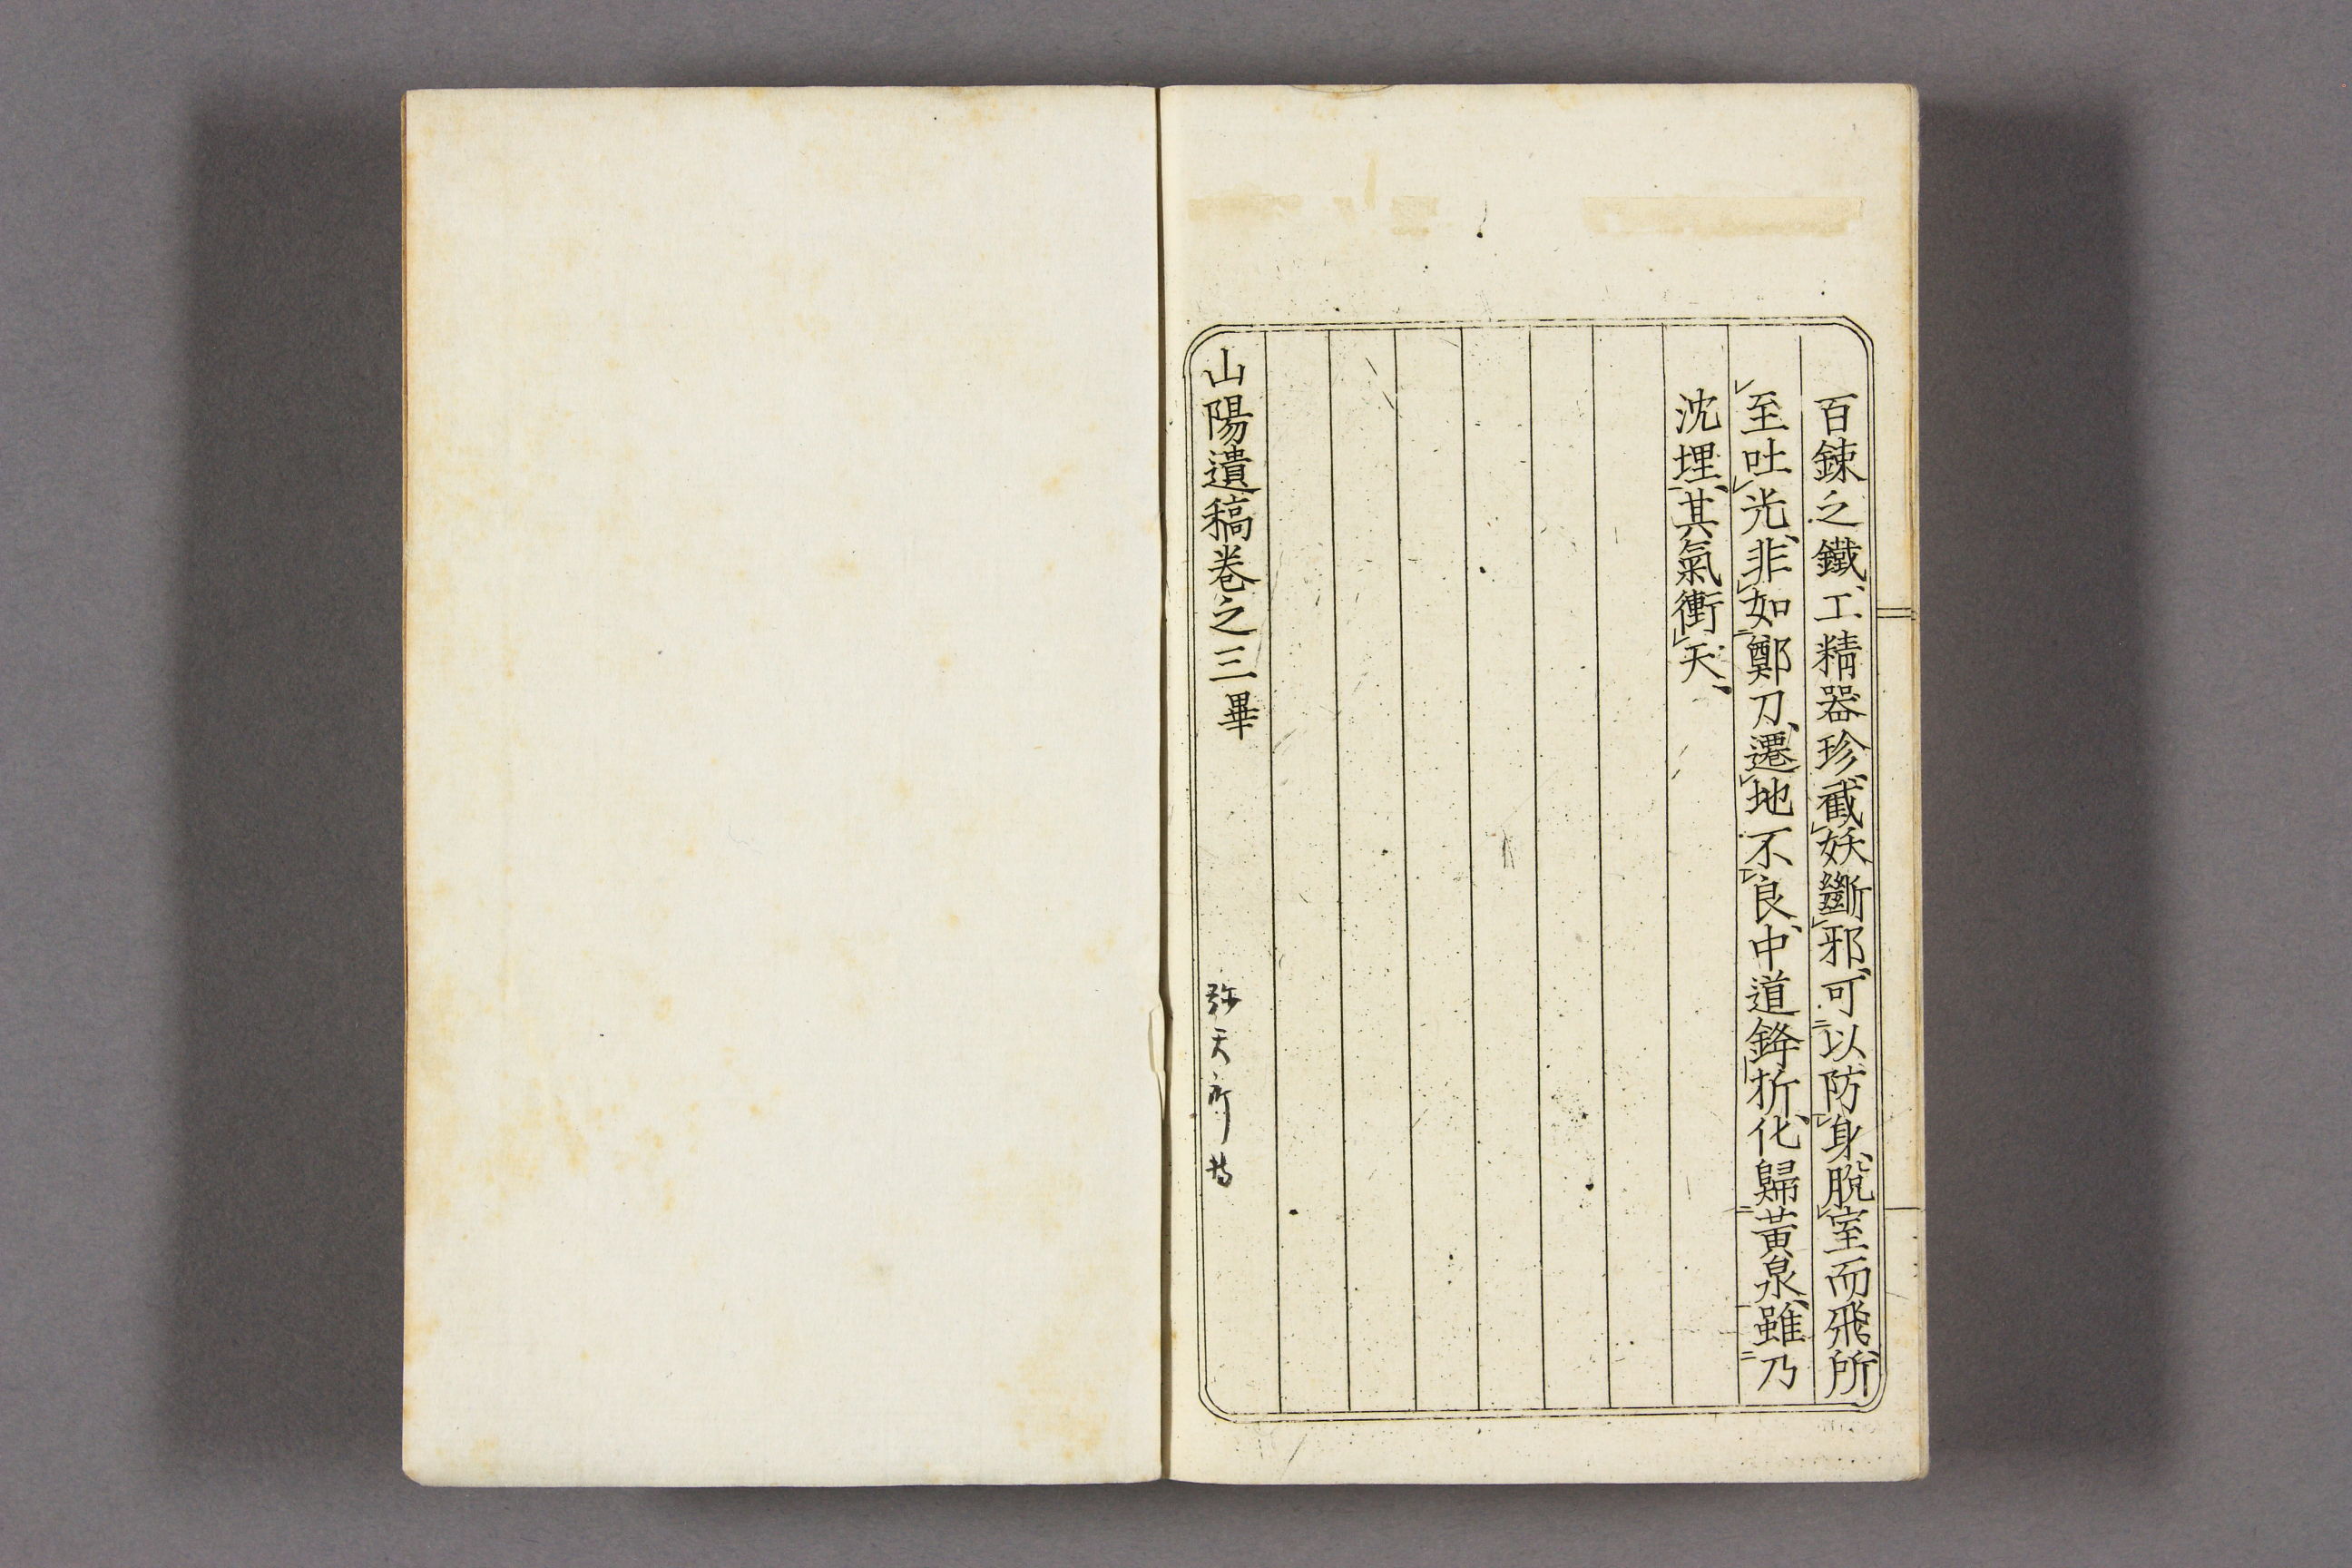 百鍊之鐵、工精器珍、截妖斷邪、可以防身、脫室而飛、所
至吐光、非如鄭刀、遷地不良、中道鋒折、化歸黃泉、雖乃
沈埋、其氣衝天、
山陽遺稿卷之三畢
弥天所